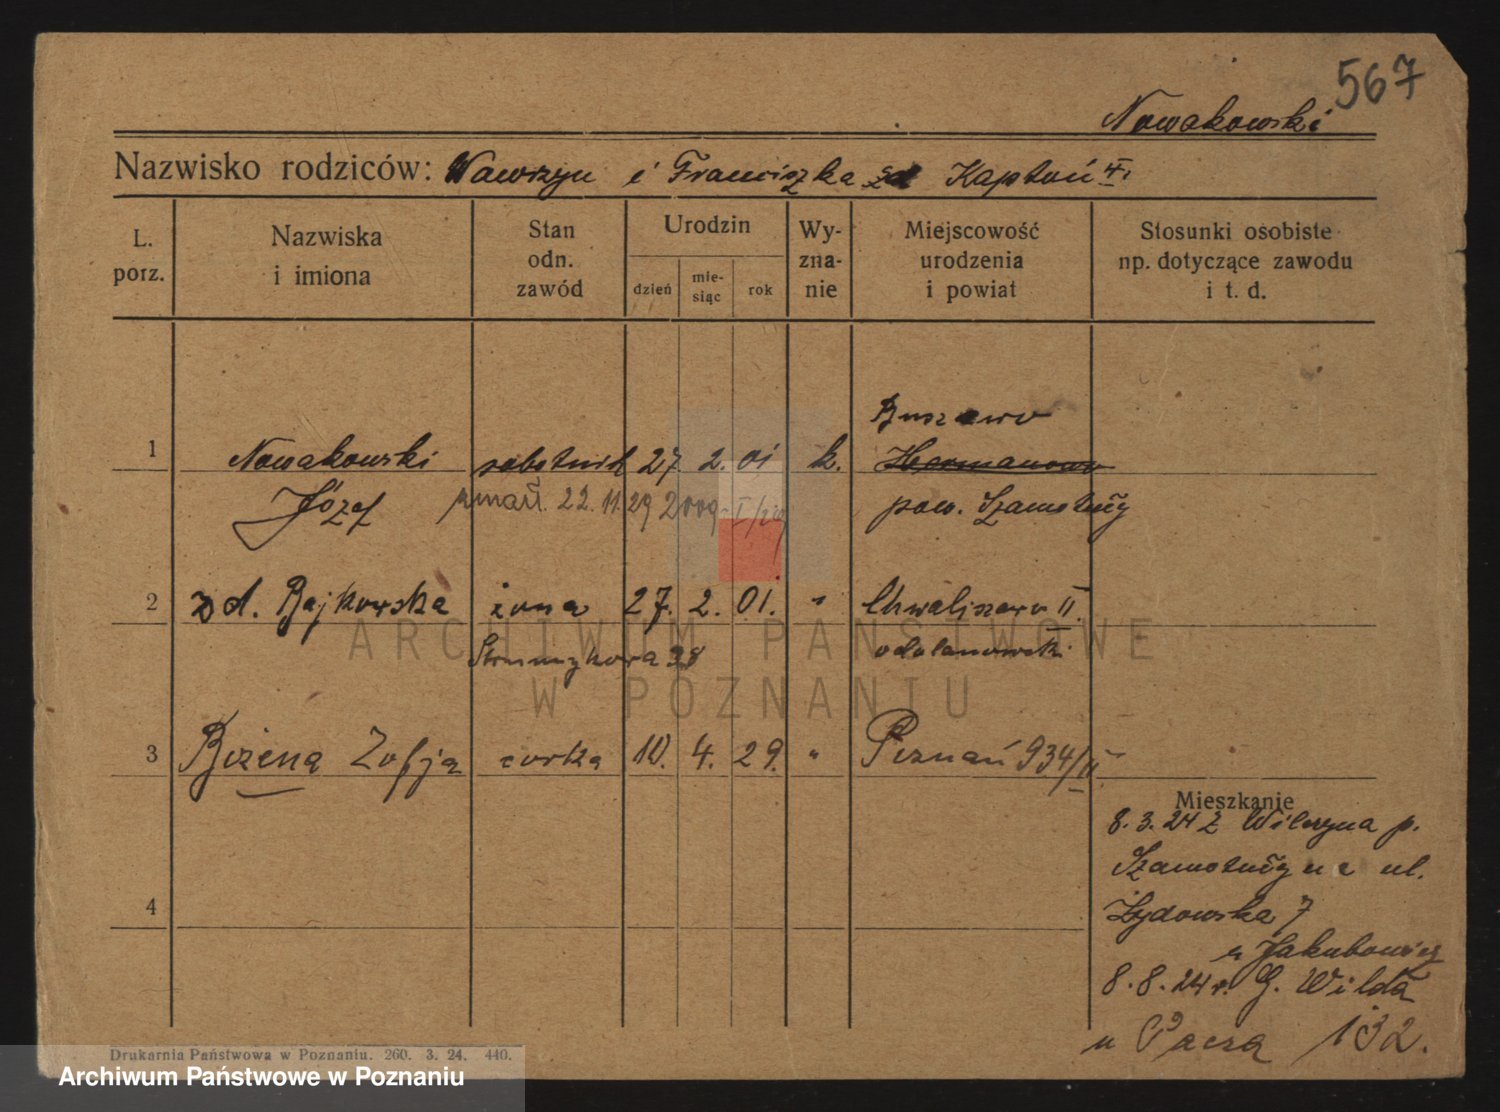 567
Nowakowski
Nazwisko rodziców: Wawrzyn i Franciszka zd Kaptoń
L. porz.
Nazwiska i imiona
Stan odn. zawód
Urodzin
dzień
mie-siąc
rok
Wy-zna-nie
Miejscowość urodzenia i powiat
Stosunki osobiste np. dotyczące zawodu i t. d.
Buszewo
1 Nowakowski robotnik 27 2. 01 k. Hermanowo
Józef zmarł. 22.11.29 2009 I/29 pow. Szamotuły
2 zd. Bajkowska żona 27. 2. 01. " Chwaliszewo II
Strumykowa 38 odolanowski
3 Bożena Zofja corka 10. 4. 29. " Poznań 934/II
Mieszkanie
8.3.24 z Wilczyna p.
Szamotuły na ul.
4 Żydowska 7
u Jakubowicz
8.8.24 r. G. Wilda
u Pacza 132.
Drukarnia Państwowa w Poznaniu. 260. 3. 24. 440.
ARCHIWUM PAŃSTWOWE
W POZNANIU
Archiwum Państwowe w Poznaniu